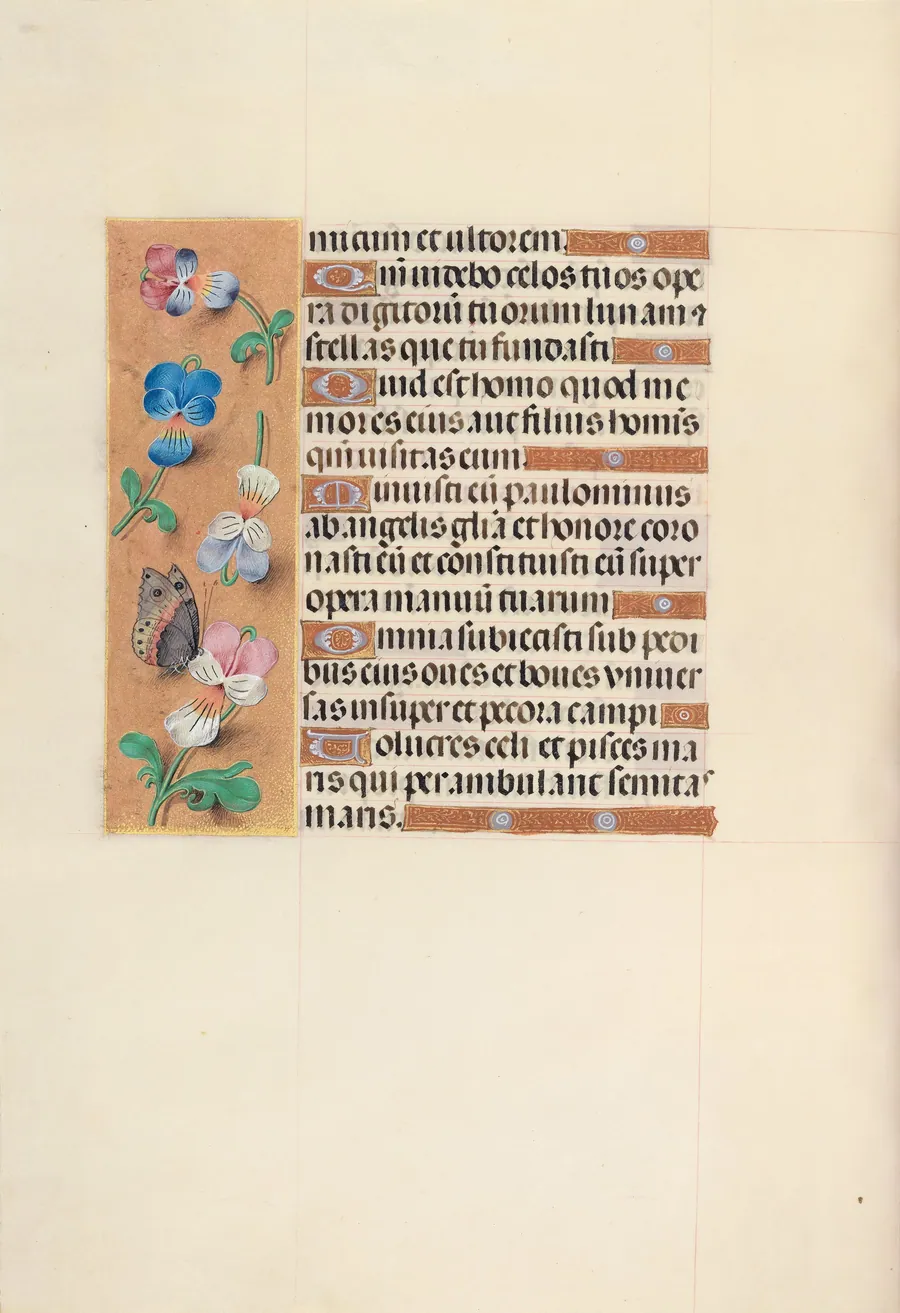 micum et ultorem.
Qm̄ uidebo celos tuos ope
ra digitorū tuorum lunam ⁊
stellas que tu fundasti
Quid est homo quod me
mores eius aut filius homīs
qm̄ uisitas eum.
Minuisti eū paulominus
ab angelis gl̄ia et honore coro
nasti eū et constituisti eū super
opera manuū tuarum
Omnia subiecisti sub pedi
bus eius oues et boues vniuer
sas insuper et pecora campi
Uolucres celi et pisces ma
ris qui perambulant semitas
maris.